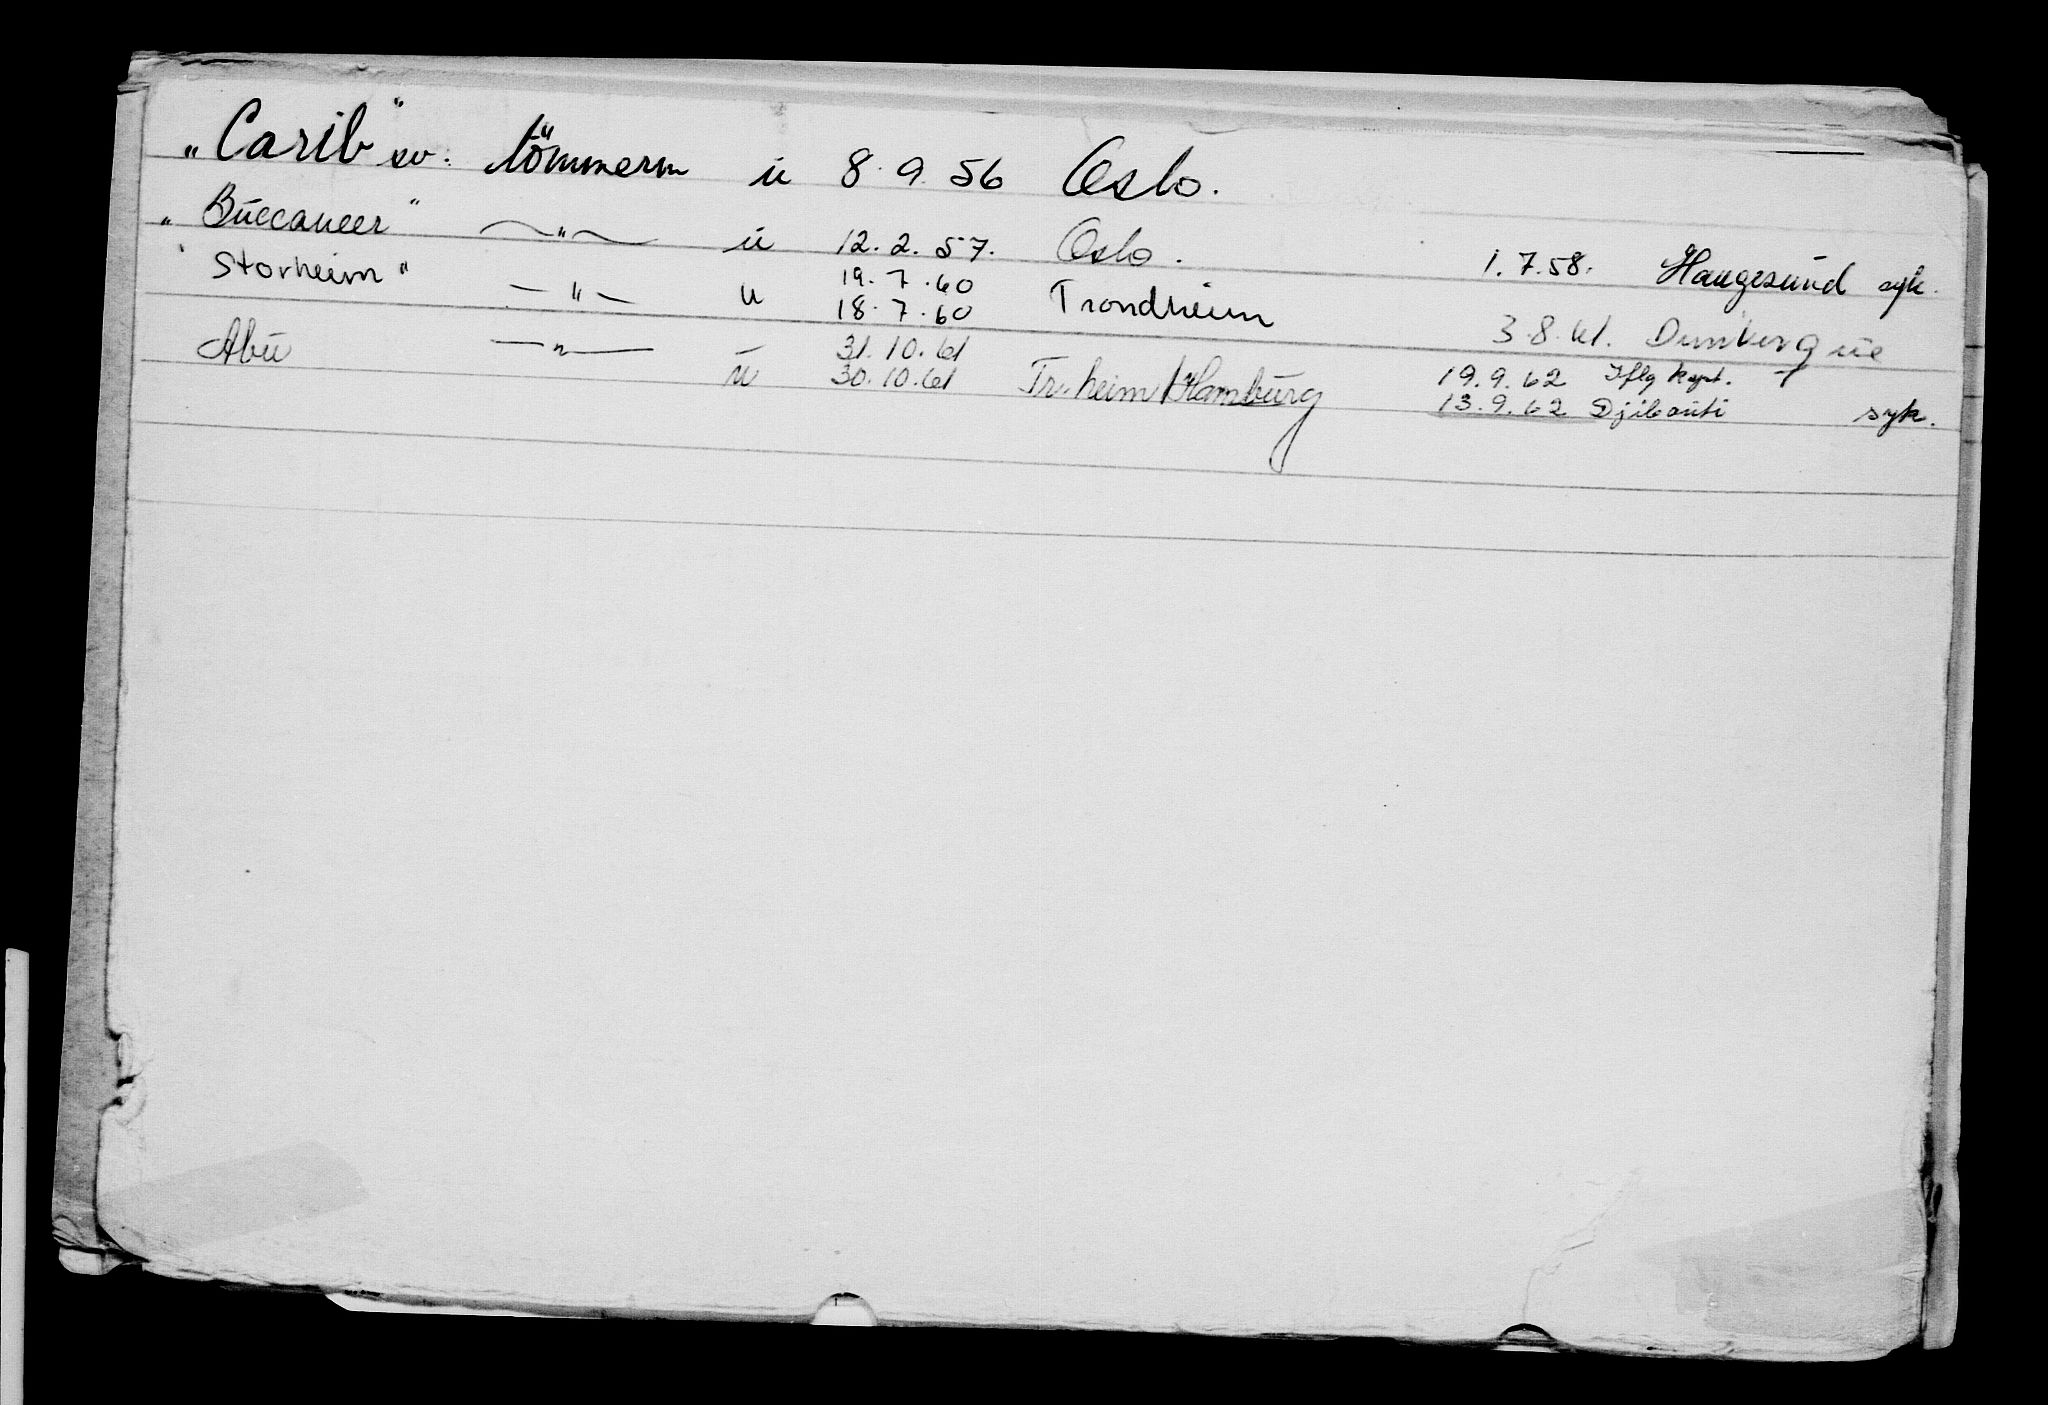 „Carib" sv. tömmerm u 8.9.56 Oslo.
„Buccaneer" —"— u 12.2.57. Oslo. 1.7.58. Haugesund syk.
"Storheim" —"— u 19.7.60 18.7.60 Trondheim 3.8.61. Dunkerque
Abu —"— u 31.10.61 30.10.61 Tr.heim/Hamburg 19.9.62 Iflg kapt.
13.9.62 Djibouti syk.